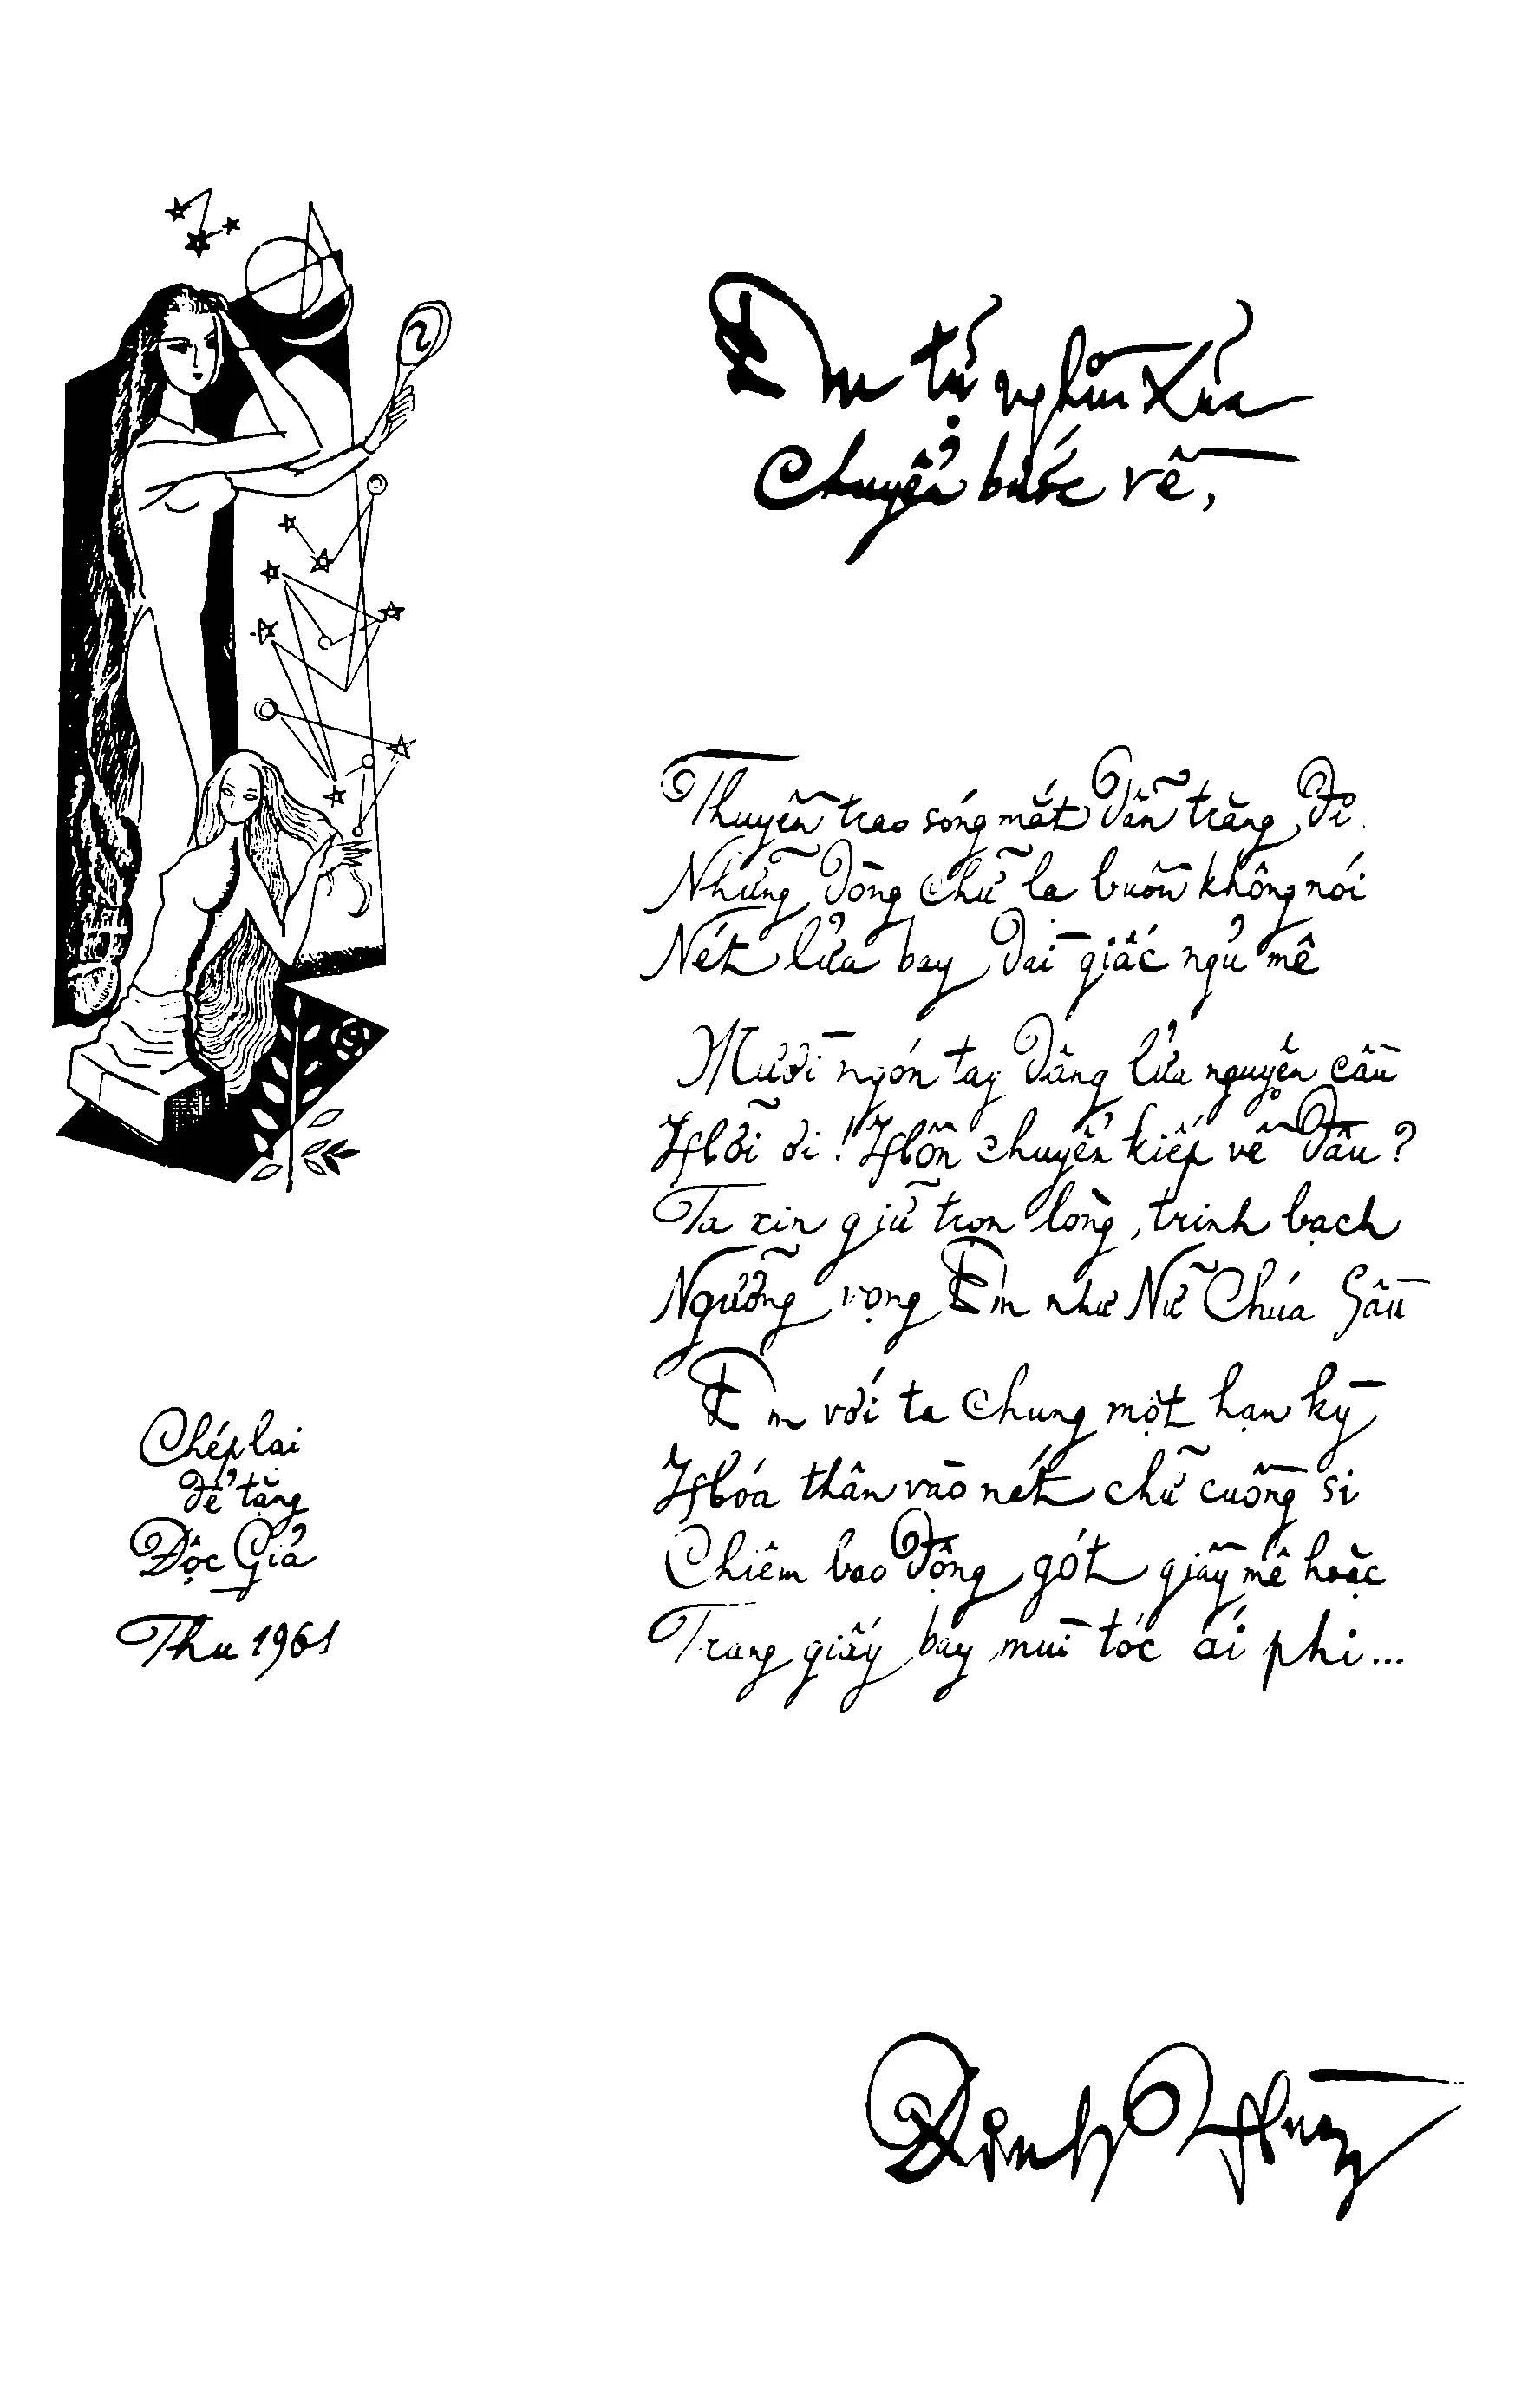 Em từ nghìn xưa
chuyển bước về,
Thuyền trao sóng mắt dẫn trăng đi
Những dòng chữ lạ buồn không nói
Nét lửa bay dài giấc ngủ mê
Mười ngón tay dâng lửa nguyện cầu
Hỡi ơi! Hồn chuyển kiếp về đâu?
Ta xin giữ trọn lòng trinh bạch
Ngưỡng vọng Em như Nữ Chúa Sầu
Em với ta chung một hạn kỳ
Hóa thân vào nét chữ cuồng si
Chiêm bao động gót giầy mê hoặc
Trang giấy bay mùi tóc ái phi...
Chép lại
để tặng
Độc Giả
Thu 1961
Đinh Hùng